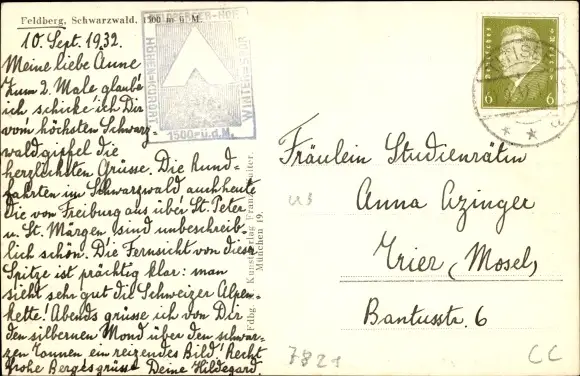 Feldberg, Schwarzwald, 1500 m ü. M.
10. Sept. 1932.
Meine liebe Änne
Zum 2. Male glaube
ich schicke ich Dir
vom höchsten Schwarz-
waldgipfel die
herzlichsten Grüsse. Die Rund-
fahrten im Schwarzwald auch heute
die von Freiburg aus über St. Peter
u. St. Märgen sind unbeschreib-
lich schön. Die Fernsicht von dieser
Spitze ist prächtig klar: man
sieht sehr gut die Schweizer Alpen-
kette! Abends grüsse ich von Dir
den silbernen Mond über den schwar-
zen Tannen ein reizendes Bild! Recht
frohe Bergesgrüsse Deine Hildegard.
HÖHEN-KURORT
WINTER-
1500 ü.d.M.
Kunstverlag Franz
München 19.
6 6
Fräulein Studienrätin
Anna Azinger
Trier (Mosel)
Bantusstr. 6
7821
CC